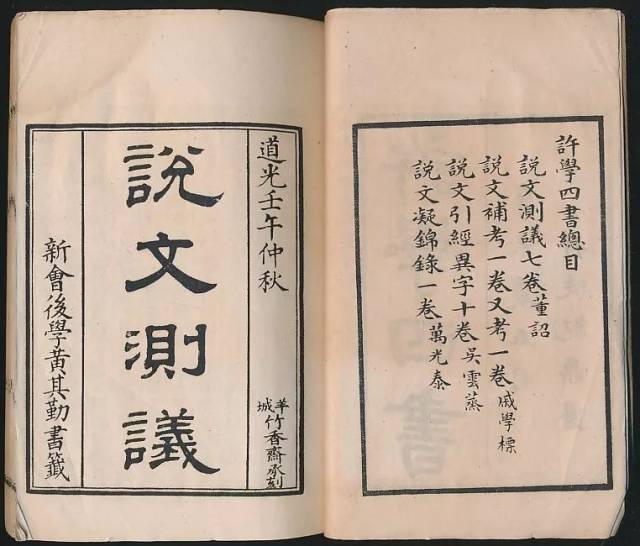 許學四書總目
說文測議七卷董詔
說文補考一卷又考一卷戚學標
說文引經異字十卷吳雲蒸
說文凝錦錄一卷萬光泰
道光壬午仲秋
羊城竹香齋承刻
說文測議
新會後學黃其勤書籤